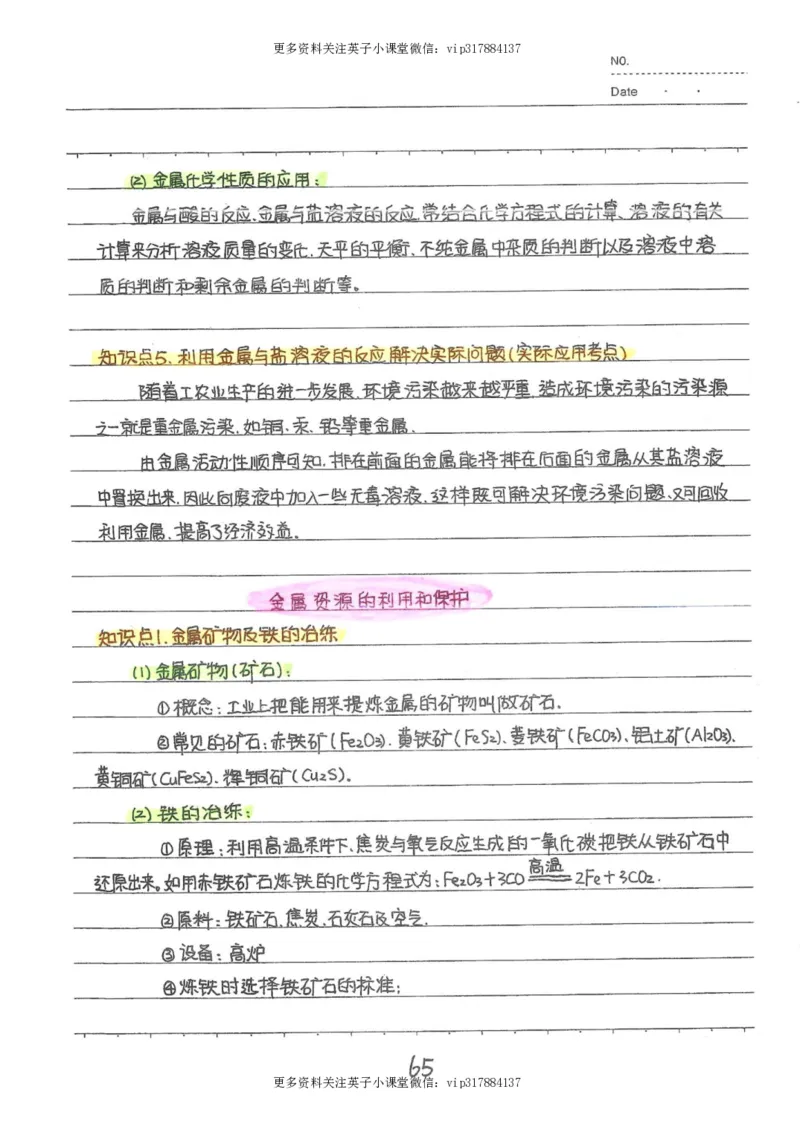 更多资料关注英子小课堂微信：vip317884137
NO.
Date · ·
(2) 金属化学性质的应用：
金属与酸的反应、金属与盐溶液的反应,常结合化学方程式的计算、溶液的有关
计算来分析溶液质量的变化、天平的平衡、不纯金属中杂质的判断以及溶液中溶
质的判断和剩余金属的判断等。
知识点5. 利用金属与盐溶液的反应解决实际问题(实际应用考点)
随着工农业生产的进一步发展,环境污染越来越严重,造成环境污染的污染源
之一就是重金属污染,如铜、汞、铅等重金属.
由金属活动性顺序可知,排在前面的金属能将排在后面的金属从其盐溶液
中置换出来,因此向废液中加入一些无毒溶液,这样既可解决环境污染问题、又可回收
利用金属,提高了经济效益。
金属资源的利用和保护
知识点1.金属矿物及铁的冶炼
(1) 金属矿物(矿石)：
①概念：工业上把能用来提炼金属的矿物叫做矿石.
②常见的矿石：赤铁矿(Fe₂O₃)、黄铁矿(FeS₂)、菱铁矿(FeCO₃)、铝土矿(Al₂O₃)、
黄铜矿(CuFeS₂)、辉铜矿(Cu₂S)。
(2) 铁的冶炼：
①原理：利用高温条件下,焦炭与氧气反应生成的一氧化碳把铁从铁矿石中
还原出来。如用赤铁矿石炼铁的化学方程式为：Fe₂O₃+3CO 高温══ 2Fe+3CO₂.
②原料：铁矿石、焦炭、石灰石及空气.
③设备：高炉
④炼铁时选择铁矿石的标准；
65
更多资料关注英子小课堂微信：vip317884137